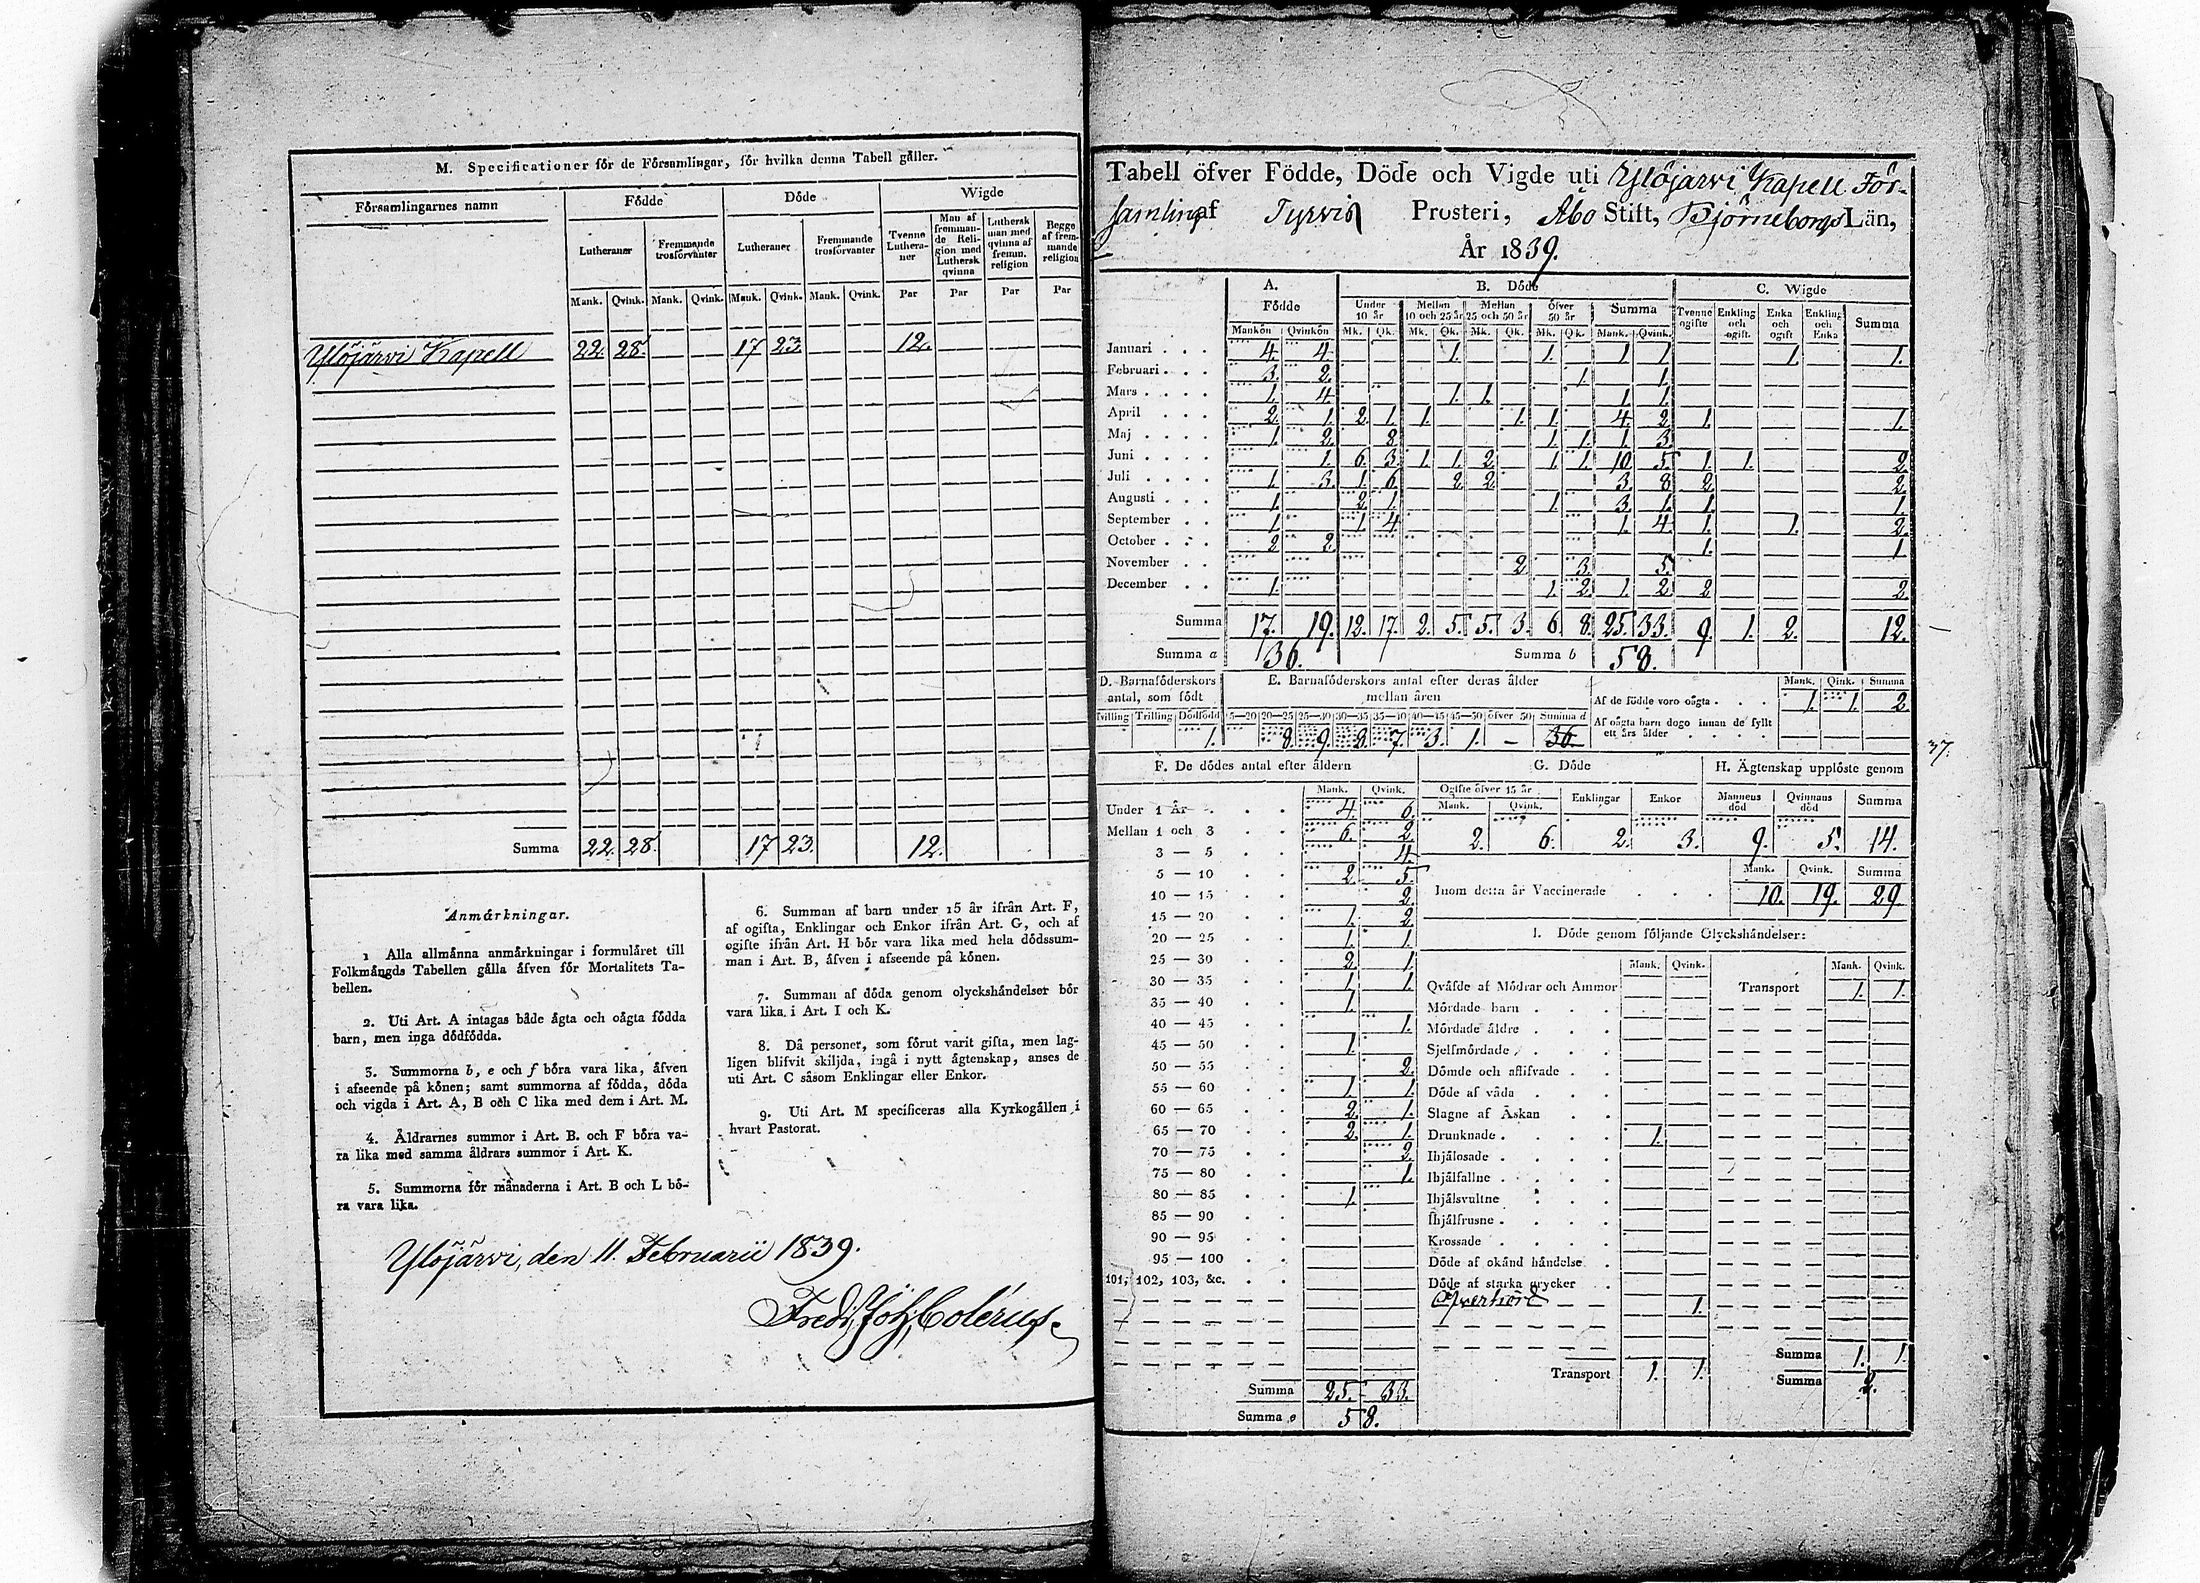 M. Specificationer för de Församlingar, för hvilka denna Tabell gäller.
Församlingarnes namn Födde Döde Wigde
Lutheraner Fremmande trosförvanter Lutheraner Fremmande trosförvanter Tvenne Lutheraner Man af fremmande Religion med Luthersk qvinna Luthersk man med qvinna af fremm. religion Begge af fremmande religion
Mank. Qvink. Mank. Qvink. Mank. Qvink. Mank. Qvink. Par Par Par Par
Ylöjärvi Kapell 22. 28. 17 23. 12.
Summa 22. 28. 17 23. 12.
Anmärkningar.
1 Alla allmänna anmärkningar i formuläret till
Folkmängds Tabellen gälla äfven för Mortalitets Ta-
bellen.
2. Uti Art. A intagas både ägta och oägta födda
barn, men inga dödfödda.
3. Summorna b, e och f böra vara lika, äfven
i afseende på könen; samt summorna af födda, döda
och vigda i Art. A, B och C lika med dem i Art. M.
4. Åldrarnes summor i Art. B. och F böra va-
ra lika med samma åldrars summor i Art. K.
5. Summorna för månaderna i Art. B och L bö-
ra vara lika.
6. Summan af barn under 15 år ifrån Art. F,
af ogifta, Enklingar och Enkor ifrån Art. G, och af
ogifte ifrån Art. H bör vara lika med hela dödssum-
man i Art. B, äfven i afseende på könen.
7. Summan af döda genom olyckshändelser bör
vara lika i Art. I och K.
8. Då personer, som förut varit gifta, men lag-
ligen blifvit skiljda, ingå i nytt ägtenskap, anses de
uti Art. C såsom Enklingar eller Enkor.
9. Uti Art. M specificeras alla Kyrkogällen i
hvart Pastorat.
Ylöjärvi, den 11. Februarii 1839.
Tabell öfver Födde, Döde och Vigde uti Ylöjärvi Kapell För-
samling af Tyrvis Prosteri, Åbo Stift, Björneborgs Län,
År 1839.
A. Födde B. Döde C. Wigde
Under 10 år Mellan 10 och 25 år Mellan 25 och 50 år öfver 50 år Summa Tvenne ogifte Enkling och ogift. Enka och ogift Enkling och Enka Summa
Mankön Qvinkön Mk. Qk. Mk. Qk. Mk. Qk. Mk. Qk. Mank. Qvink.
Januari 4. 4. 1. 1. 1. 1. 1. 1.
Februari 3. 2. 1. 1.
Mars 1. 4 1. 1. 1. 1.
April 2. 1. 2. 1. 1. 1. 1. 4. 2. 1. 1.
Maj 1. 2. 1. 1. 1. 3.
Juni 1. 6. 3. 1. 1. 2. 1. 1. 10. 5. 1. 1. 2.
Juli 1. 3. 1. 6. 2. 2. 3. 8 2. 2.
Augusti 1. 2. 1. 1. 3. 1. 1. 1.
September 1. 1. 4. 1. 4. 1. 1. 2.
October 2. 2. 1. 1.
November 2. 3. 5.
December 1. 1. 2. 1. 2. 2 2.
Summa 17. 19. 12. 17. 2. 5. 5. 3. 6. 8. 25. 33. 9. 1. 2. 12.
Summa a 36. Summa b 58.
D. Barnaföderskors antal, som födt
Tvilling Trilling Dödfödd
1.
E. Barnaföderskors antal efter deras ålder mellan åren
15—20 20—25 25—30 30—35 35—40 40—45 45—50 öfver 50 Summa d
8. 9. 8. 7. 3. 1. — 36.
Mank. Qink. Summa
Af de födde voro oägta 1. 1. 2.
Af oägta barn dogo innan de fyllt
ett års ålder
37.
F. De dödes antal efter åldern
Mank. Qvink.
Under 1 År 4. 6.
Mellan 1 och 3 6. 2.
3 — 5 4.
5 — 10 2. 5.
10 — 15 2.
15 — 20 1. 2.
20 — 25 1. 1.
25 — 30 2. 1.
30 — 35 1. 1.
35 — 40 1.
40 — 45 1.
45 — 50 1.
50 — 55 2.
55 — 60 1. 1.
60 — 65 2. 1.
65 — 70 2. 1.
70 — 75 2.
75 — 80 1.
80 — 85 1.
85 — 90
90 — 95
95 — 100
101, 102, 103, &c.
Summa 25. 33.
Summa e 58.
G. Döde
Ogifte öfver 15 år Enklingar Enkor
Mank. Qvink.
2. 6. 2. 3.
H. Ägtenskap upplöste genom
Mannens död Qvinnans död Summa
9. 5. 14.
Mank. Qvink. Summa
Inom detta år Vaccinerade 10. 19. 29.
I. Döde genom följande Olyckshändelser:
Mank. Qvink. Mank. Qvink.
Qväfde af Mödrar och Ammor Transport 1. 1.
Mördade barn
Mördade äldre
Sjelfmördade
Dömde och aflifvade
Döde af våda
Slagne af Åskan
Drunknade 1.
Ihjälosade
Ihjälfallne
Ihjälsvultne
Ihjälfrusne
Krossade
Döde af okänd händelse
Döde af starka drycker
1.
Summa 1. 1.
Transport 1. 1. Summa 2.